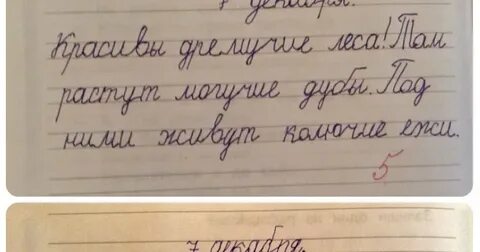 7 декабря.
Красивы дремучие леса! Там
растут могучие дубы. Под
ними живут колючие ежи.
5
7 декабря.